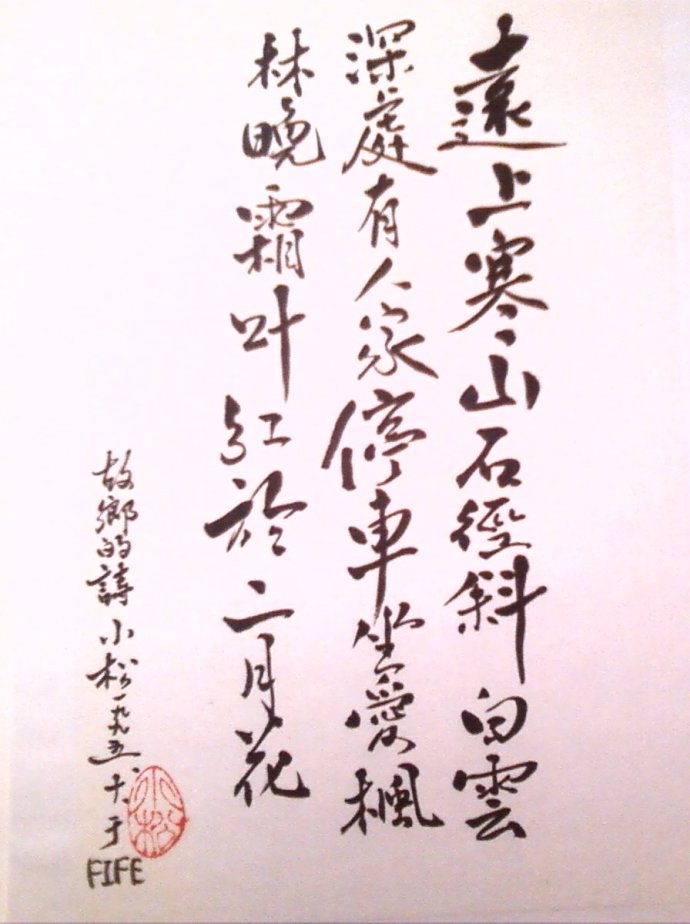 遠上寒山石徑斜白雲
深處有人家停車坐愛楓
林晚霜叶紅於二月花
故鄉的詩小松一九九五、十、于
FIFE
小松